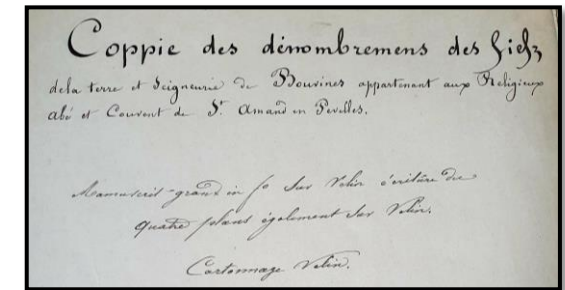 Coppie des dénombremens des fiefz
dela terre et Seigneurie de Bouvines appartenant aux Religieux
abé et Couvent de St. Amand en Pevelles.
Manuscrit-grand in fo sur Velin écriture du
quatre plans également sur Velin.
Cartonnage Velin.